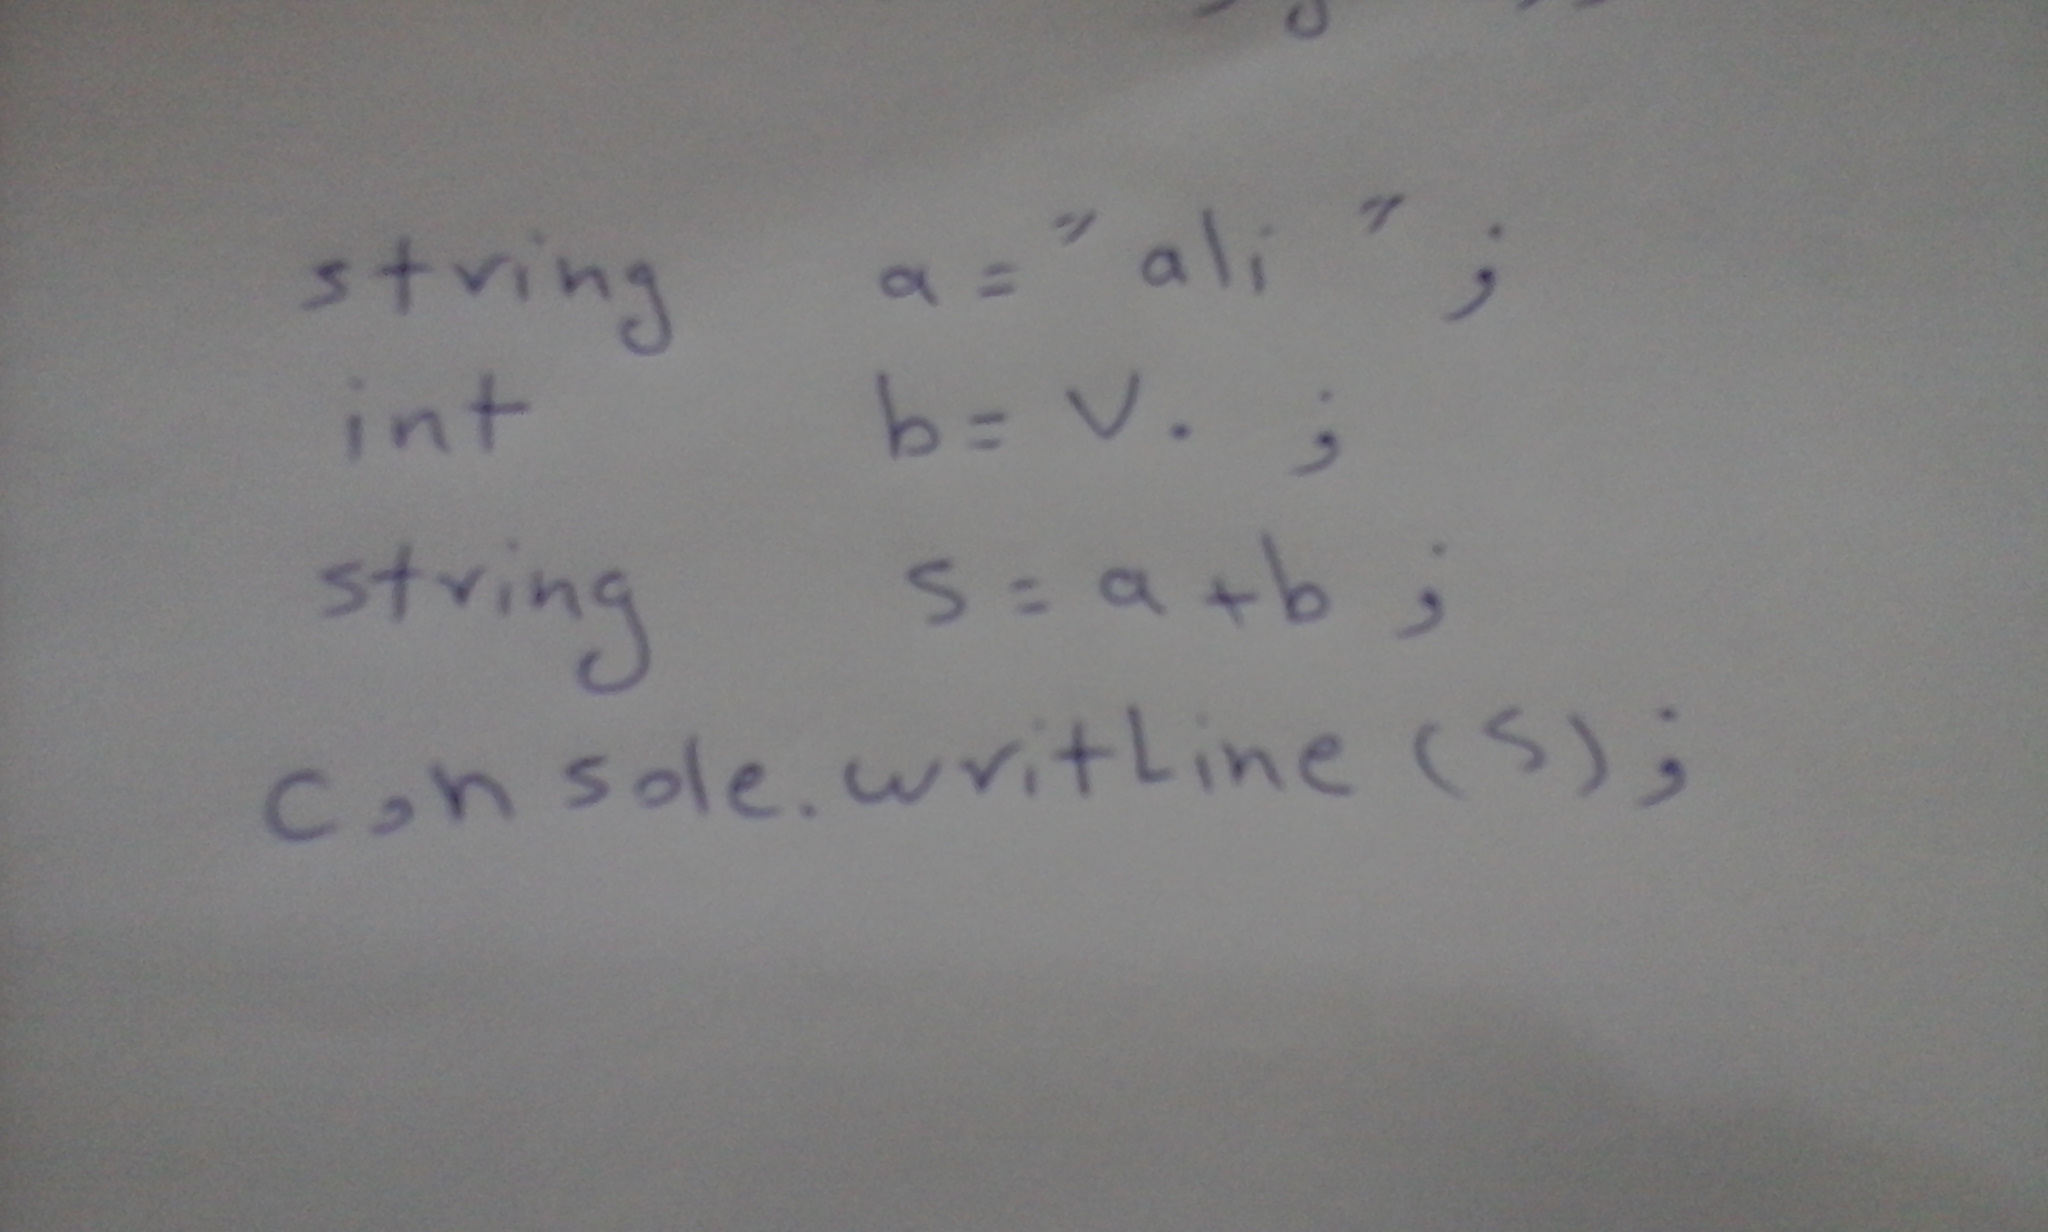 string a = "ali";
int b = ۷۰;
string s = a + b;
console.writLine (s);